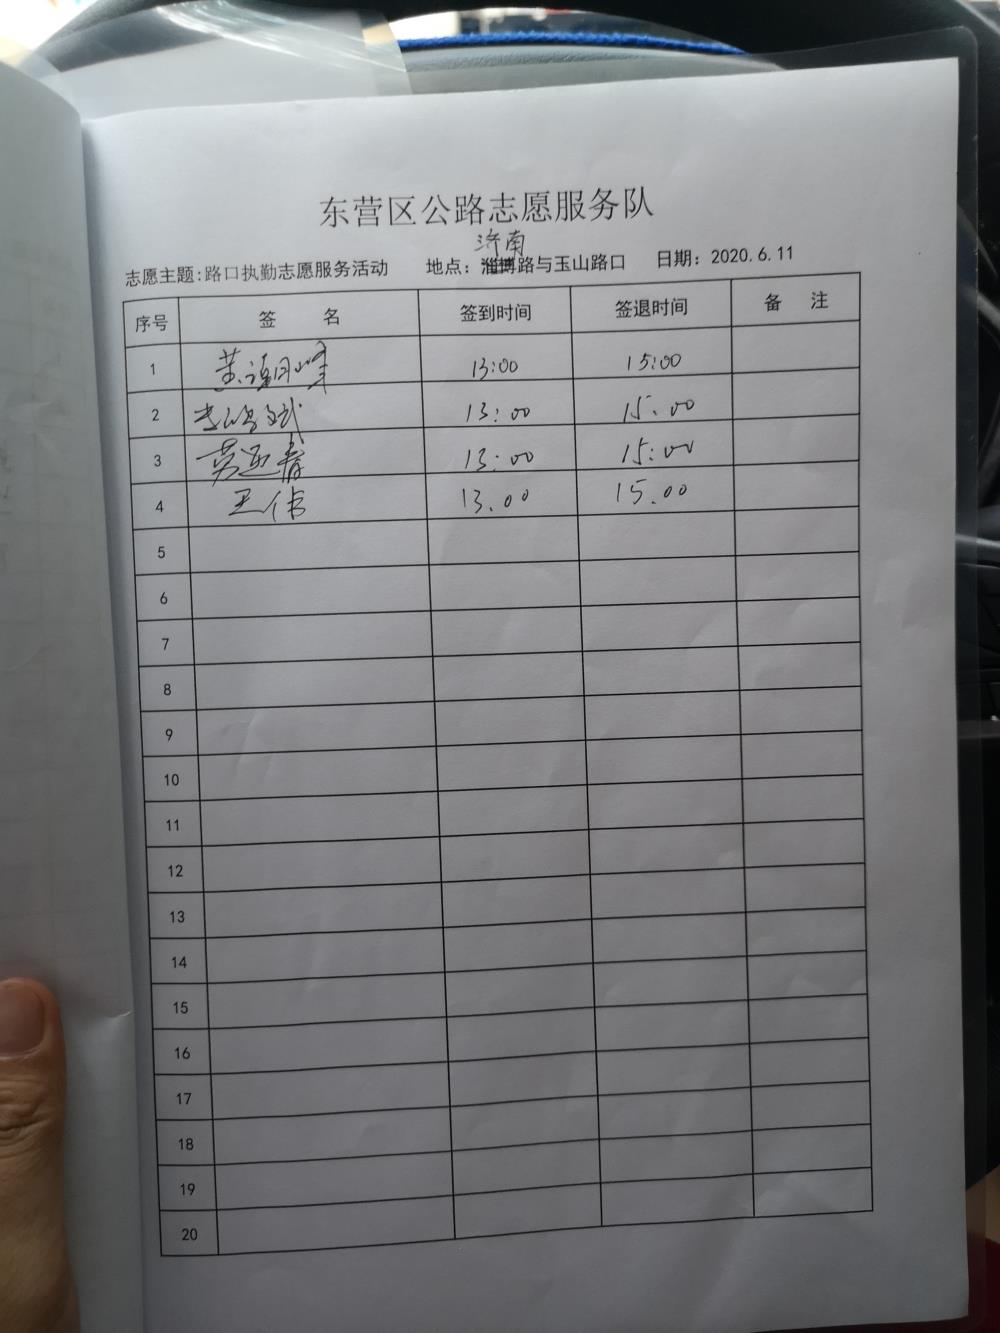 东营区公路志愿服务队
济南
志愿主题:路口执勤志愿服务活动 地点：淄博路与玉山路口 日期：2020.6.11
序号 签 名 签到时间 签退时间 备 注
1 13:00 15:00
2 13:00 15.00
3 13:00 15:00
4 王伟 13.00 15.00
5
6
7
8
9
10
11
12
13
14
15
16
17
18
19
20